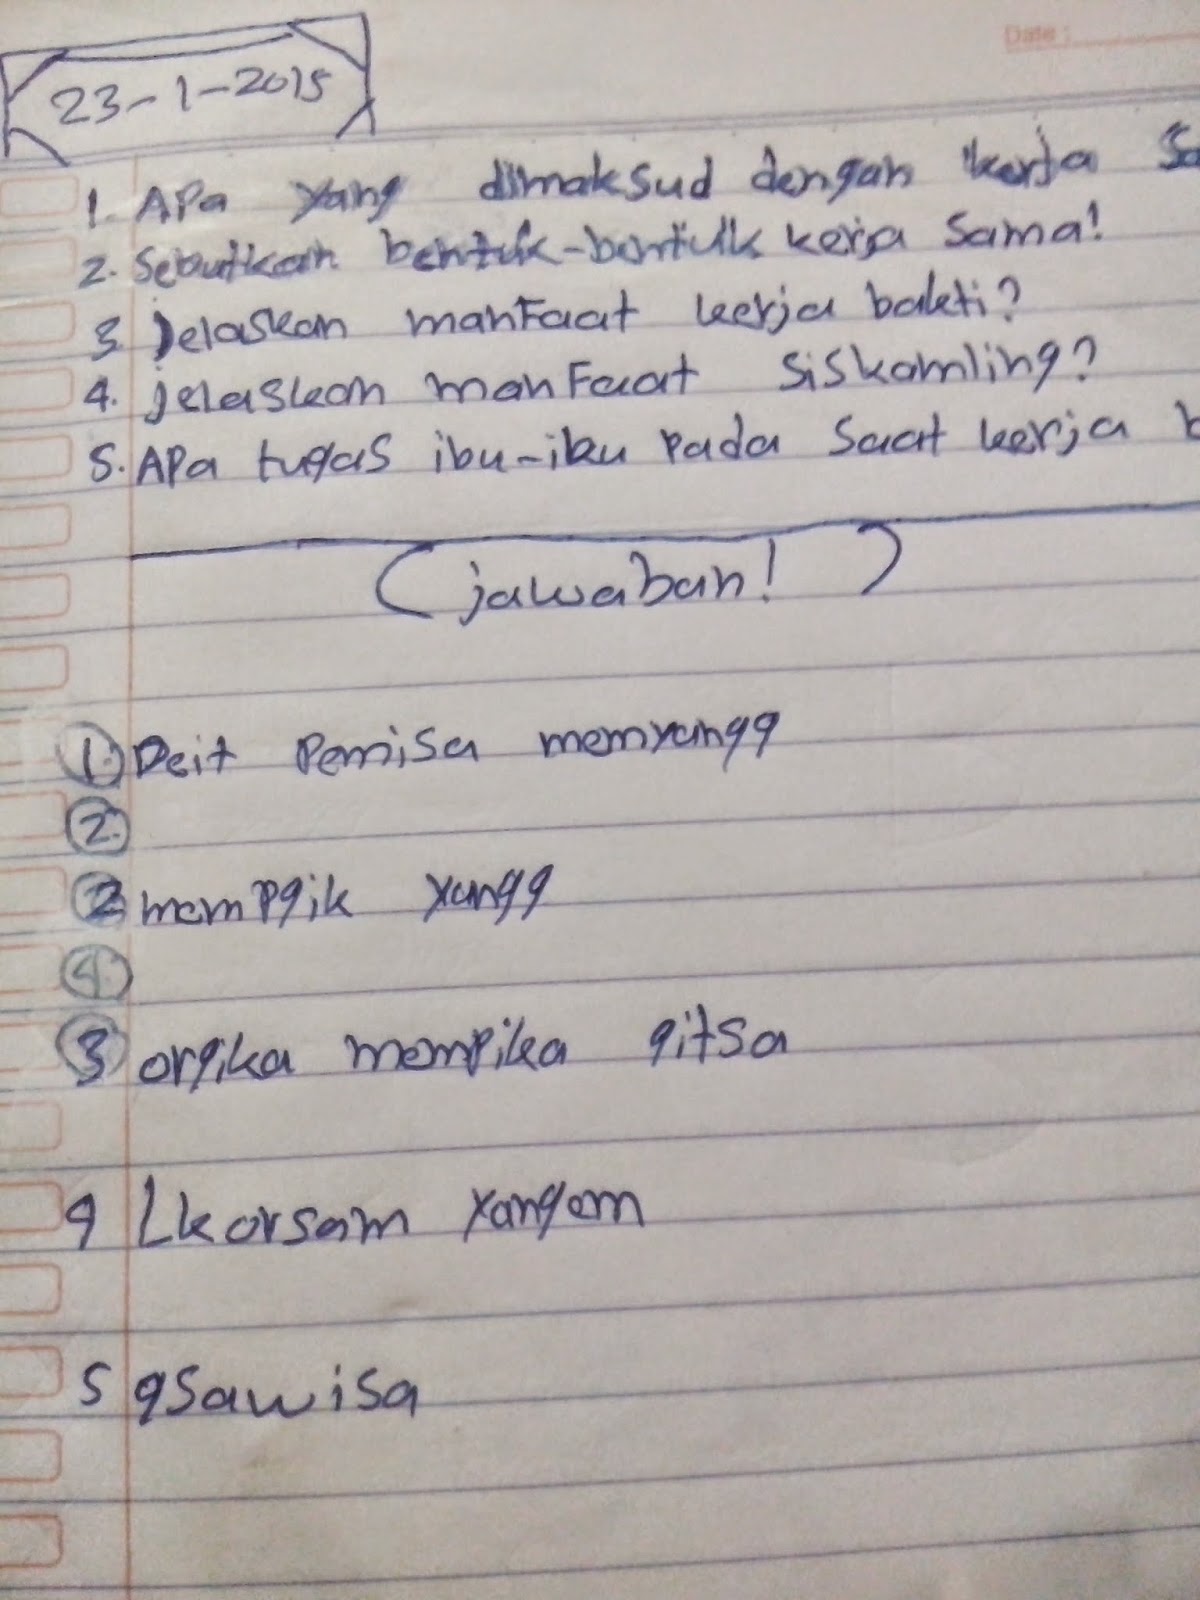 Date :
23-1-2015
1. APa yang dimaksud dengan kerja Sa
2. Sebutkan bentuk-bentuk kerja Sama!
3. Jelaskan manFaat kerja bakti?
4. jelaskan manFaat Siskamling?
5. APa tugas ibu-iku Pada Saat kerja b
(jawaban!)
1. Deit Pemisa memyangg
2.
2. memPqik yangg
4.
3 orqika mempika qitsa
4 Lkorsam yangem
5 qsawisa